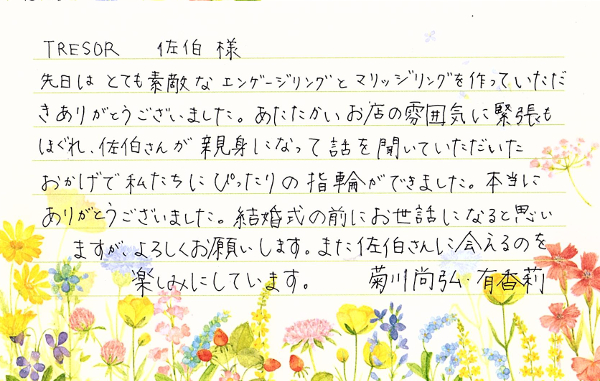 TRESOR 佐伯 様
先日は とても素敵な エンゲージリングと マリッジリングを作っていただ
きありがとうございました。あたたかい お店の雰囲気に緊張も
ほぐれ、佐伯さんが 親身になって 話を 聞いていただいた
おかげで 私たちに ぴったりの 指輪ができました。本当に
ありがとうございました。結婚式の前にお世話になると思い
ますが、よろしくお願いします。また佐伯さんに会えるのを
楽しみにしています。 菊川尚弘・有香莉